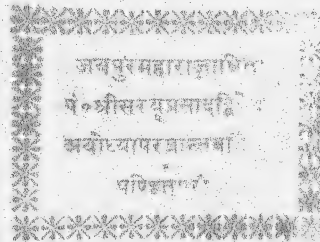 जयपुरमहाराजाश्रित
पं०श्रीसरयूप्रसादद्वि
अयोध्यापरप्रान्तवा
पण्डित